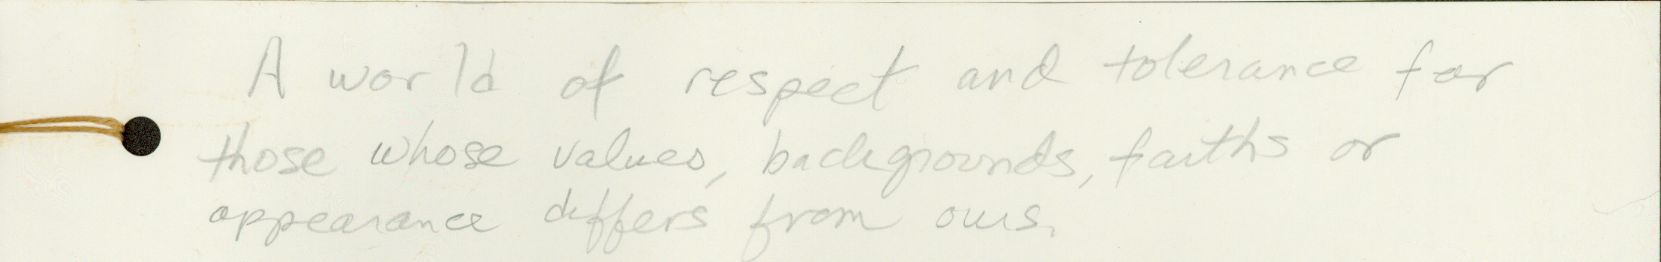 A world of respect and tolerance for
those whose values, backgrounds, faiths or
appearance differs from ours.